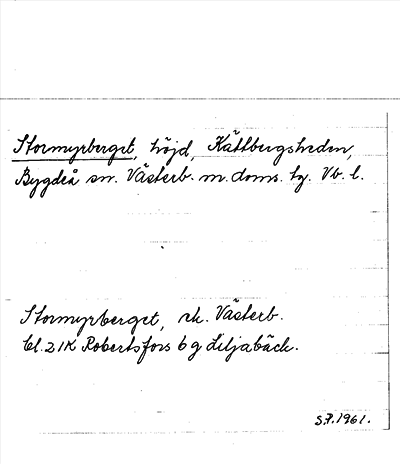 Stormyrberget, höjd, Kättbergsheden,
Bygdeå sn. Västerb. m. doms. tg. Vb. l.
Stormyrberget, rk. Västerb.
bl. 21K Robertsfors 6 g Liljabäck.
S.P. 1961.